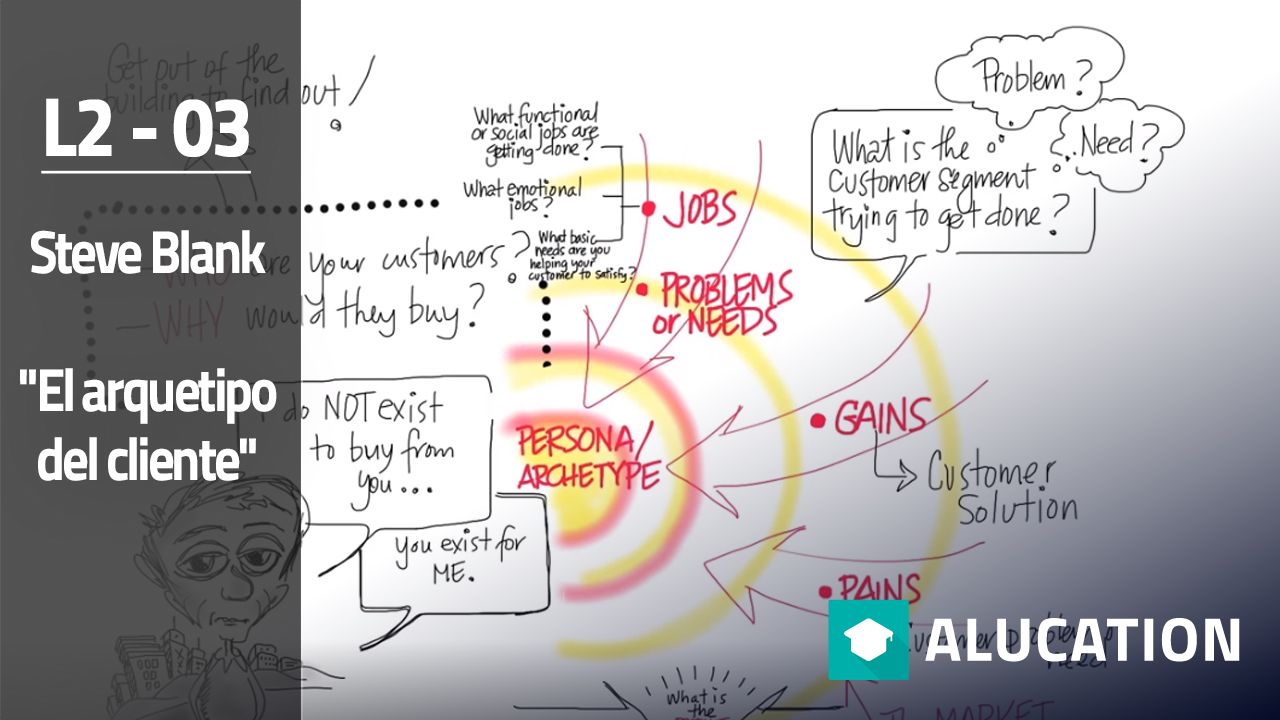 L2 - 03
Steve Blank
"El arquetipo
del cliente"
Get out of the
building to find out!
WHO are your customers?
WHY would they buy?
I do NOT exist
to buy from
you...
you exist for
ME.
What functional
or social jobs are
getting done?
What emotional
jobs?
What basic
needs are you
helping your
customer to satisfy?
JOBS
PROBLEMS
or NEEDS
PERSONA/
ARCHETYPE
GAINS
Customer
Solution
PAINS
Customer
What is the
customer segment
trying to get done?
Problem?
Need?
What is
the
MARKET
ALUCATION